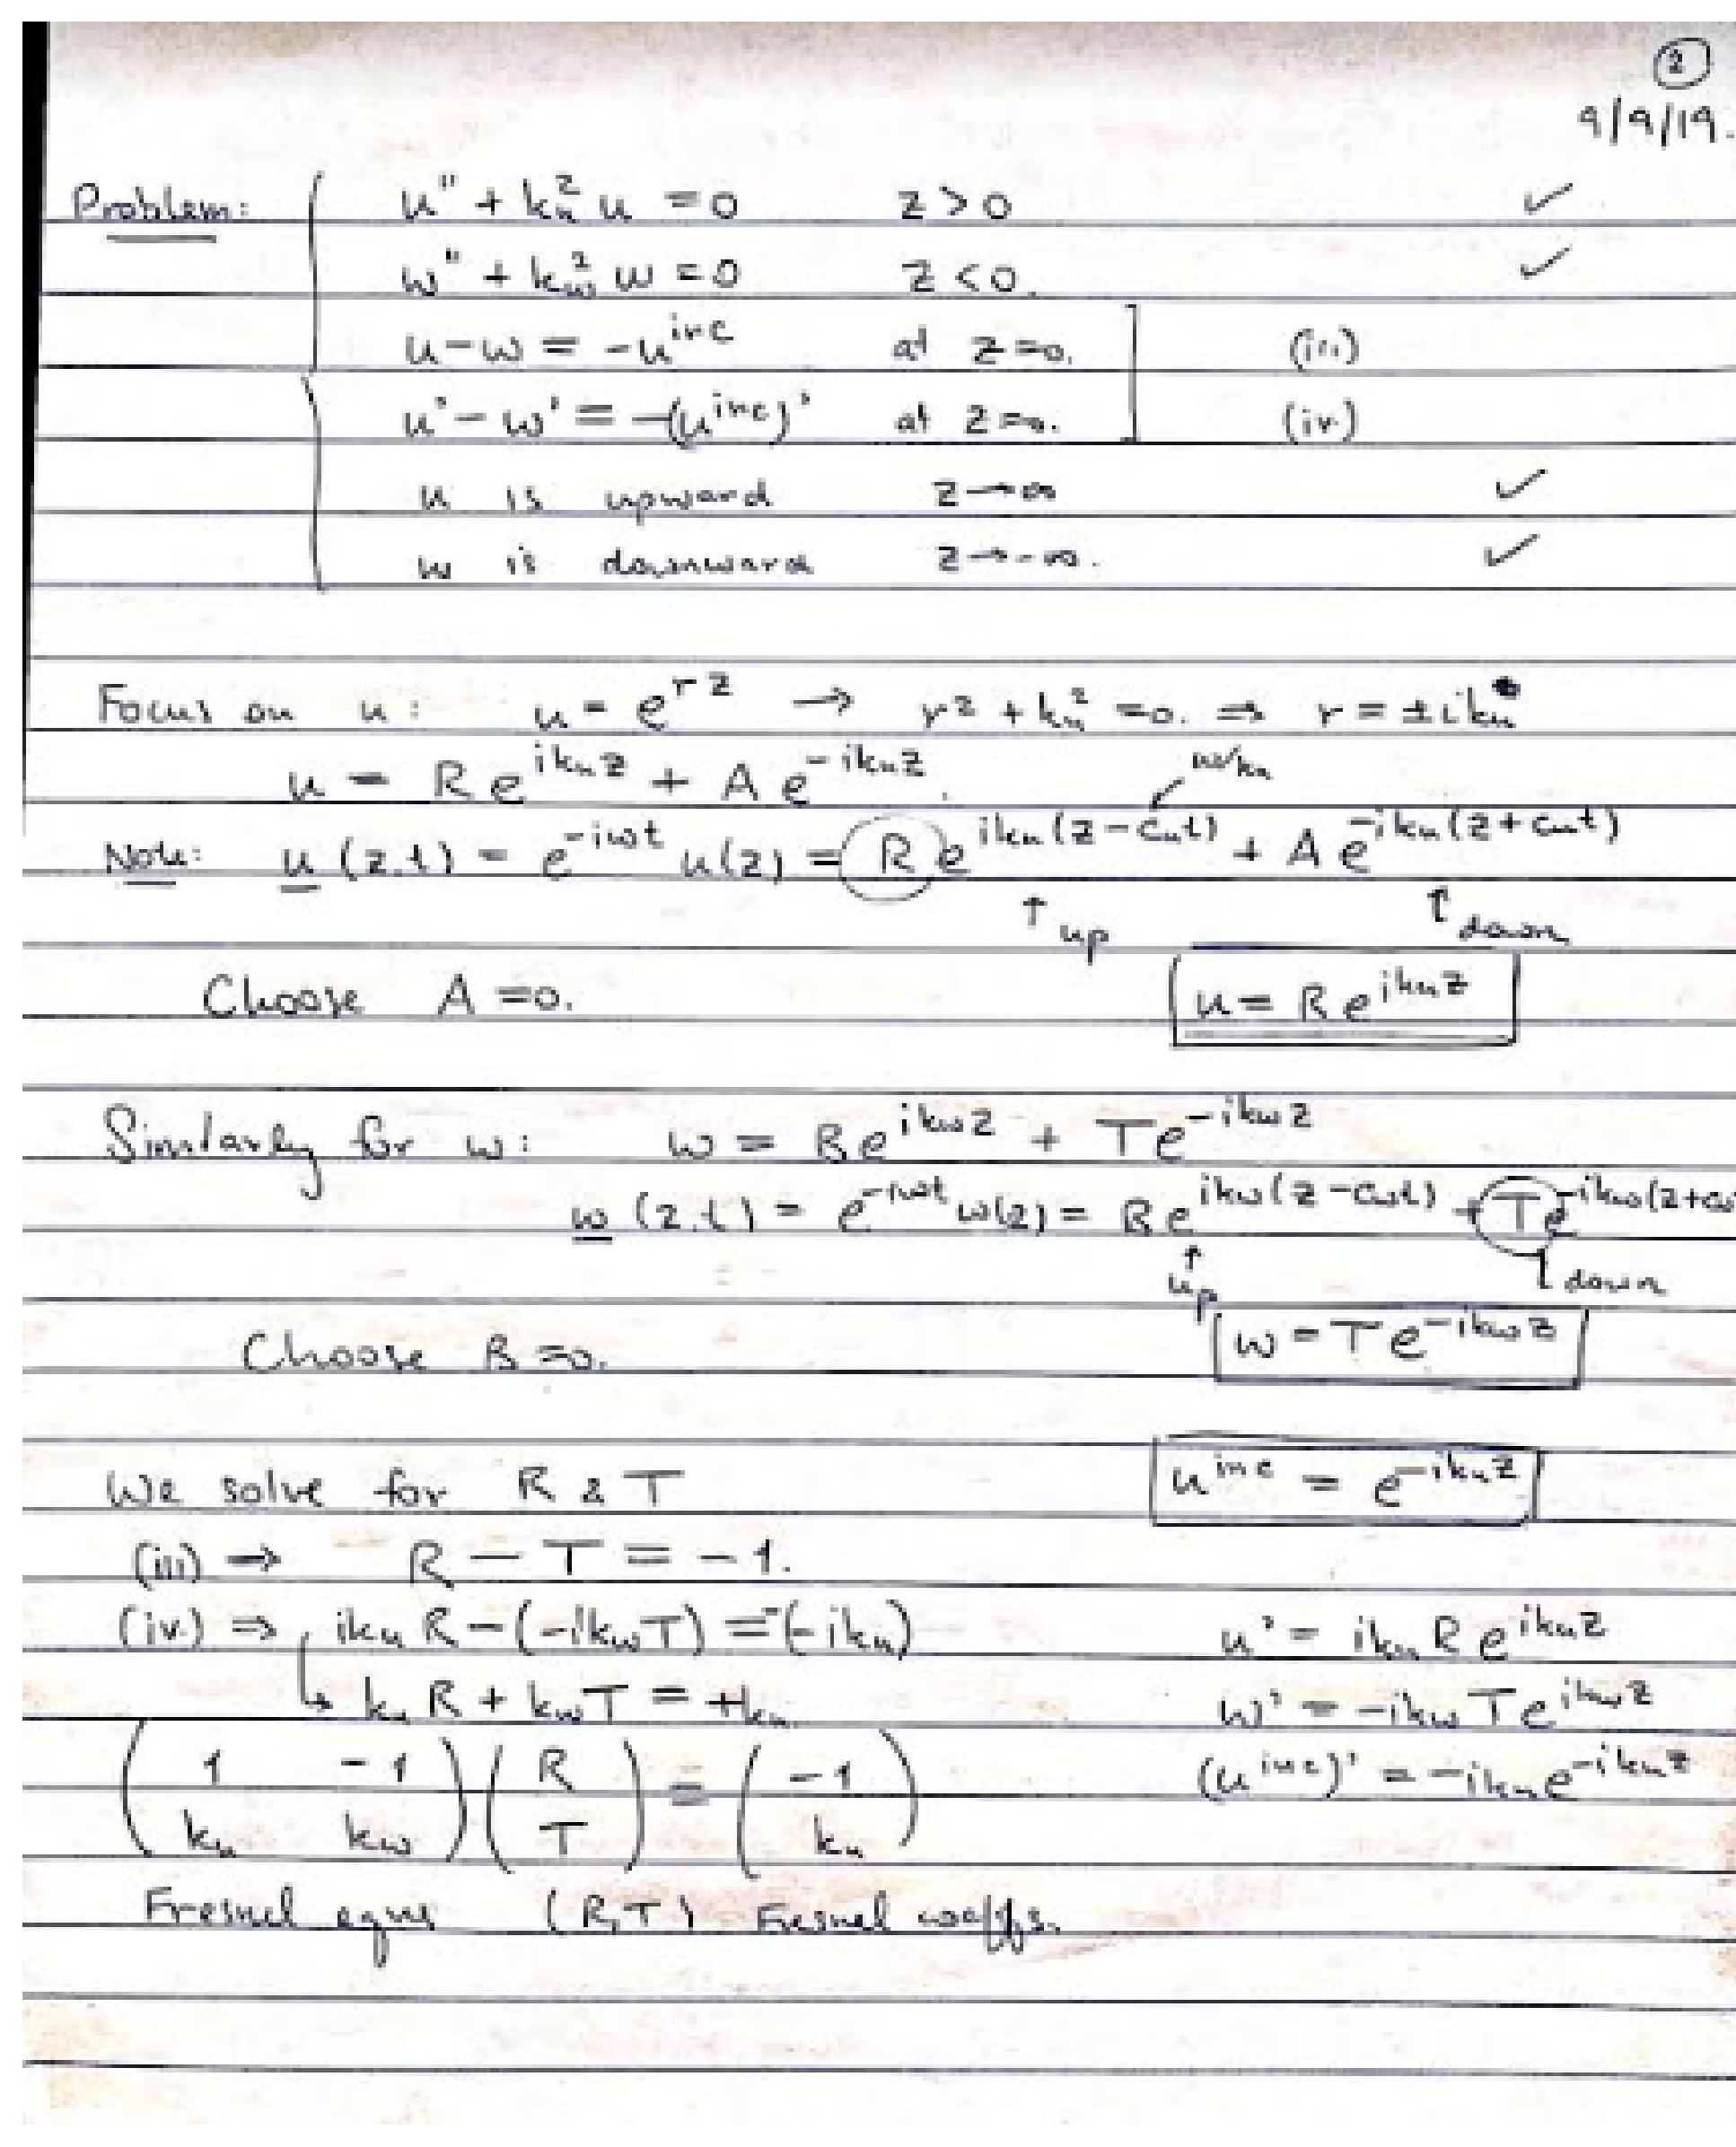 2
9/9/19.
Problem: u'' + k_u^2 u = 0 z > 0 ✓
w'' + k_w^2 w = 0 z < 0. ✓
u - w = -u^{inc} at z = 0. (iii)
u' - w' = -(u^{inc})' at z = 0. (iv)
u is upward z → ∞ ✓
w is downward z → -∞. ✓
Focus on u: u = e^{rz} → r^2 + k_u^2 = 0. ⇒ r = ± i k_u
u = R e^{i k_u z} + A e^{-i k_u z}. ω/k_u
Note: u (z,t) = e^{-iωt} u(z) = R e^{i k_u (z - c_u t)} + A e^{-i k_u (z + c_u t)}
↑ up ↑ down
Choose A = 0. u = R e^{i k_u z}
Similarly for w: w = B e^{i k_w z} + T e^{-i k_w z}
w (z,t) = e^{-iωt} w(z) = B e^{i k_w (z - c_w t)} + T e^{-i k_w (z + c_w
↑ up down
Choose B = 0. w = T e^{-i k_w z}
We solve for R & T u^{inc} = e^{-i k_u z}
(iii) ⇒ R - T = -1.
(iv) ⇒ i k_u R - (-i k_w T) = -(-i k_u) u' = i k_u R e^{i k_u z}
↳ k_u R + k_w T = + k_u w' = -i k_w T e^{i k_w z}
( 1 -1 ) ( R ) = ( -1 ) (u^{inc})' = -i k_u e^{-i k_u z}
( k_u k_w ) ( T ) ( k_u )
Fresnel eqns (R,T) Fresnel coeffs.